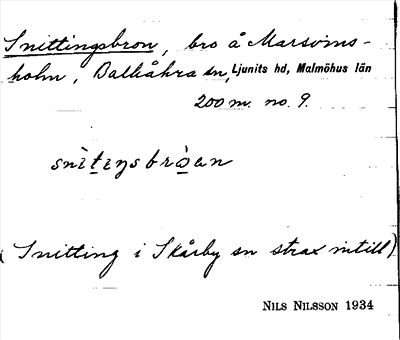 Snittingsbron, bro å Marsvins-
holm, Balkåkra sn, Ljunits hd, Malmöhus län
200 m. no. 9.
snìtiŋsbròan
(Snitting i Skårby sn strax intill)
NILS NILSSON 1934